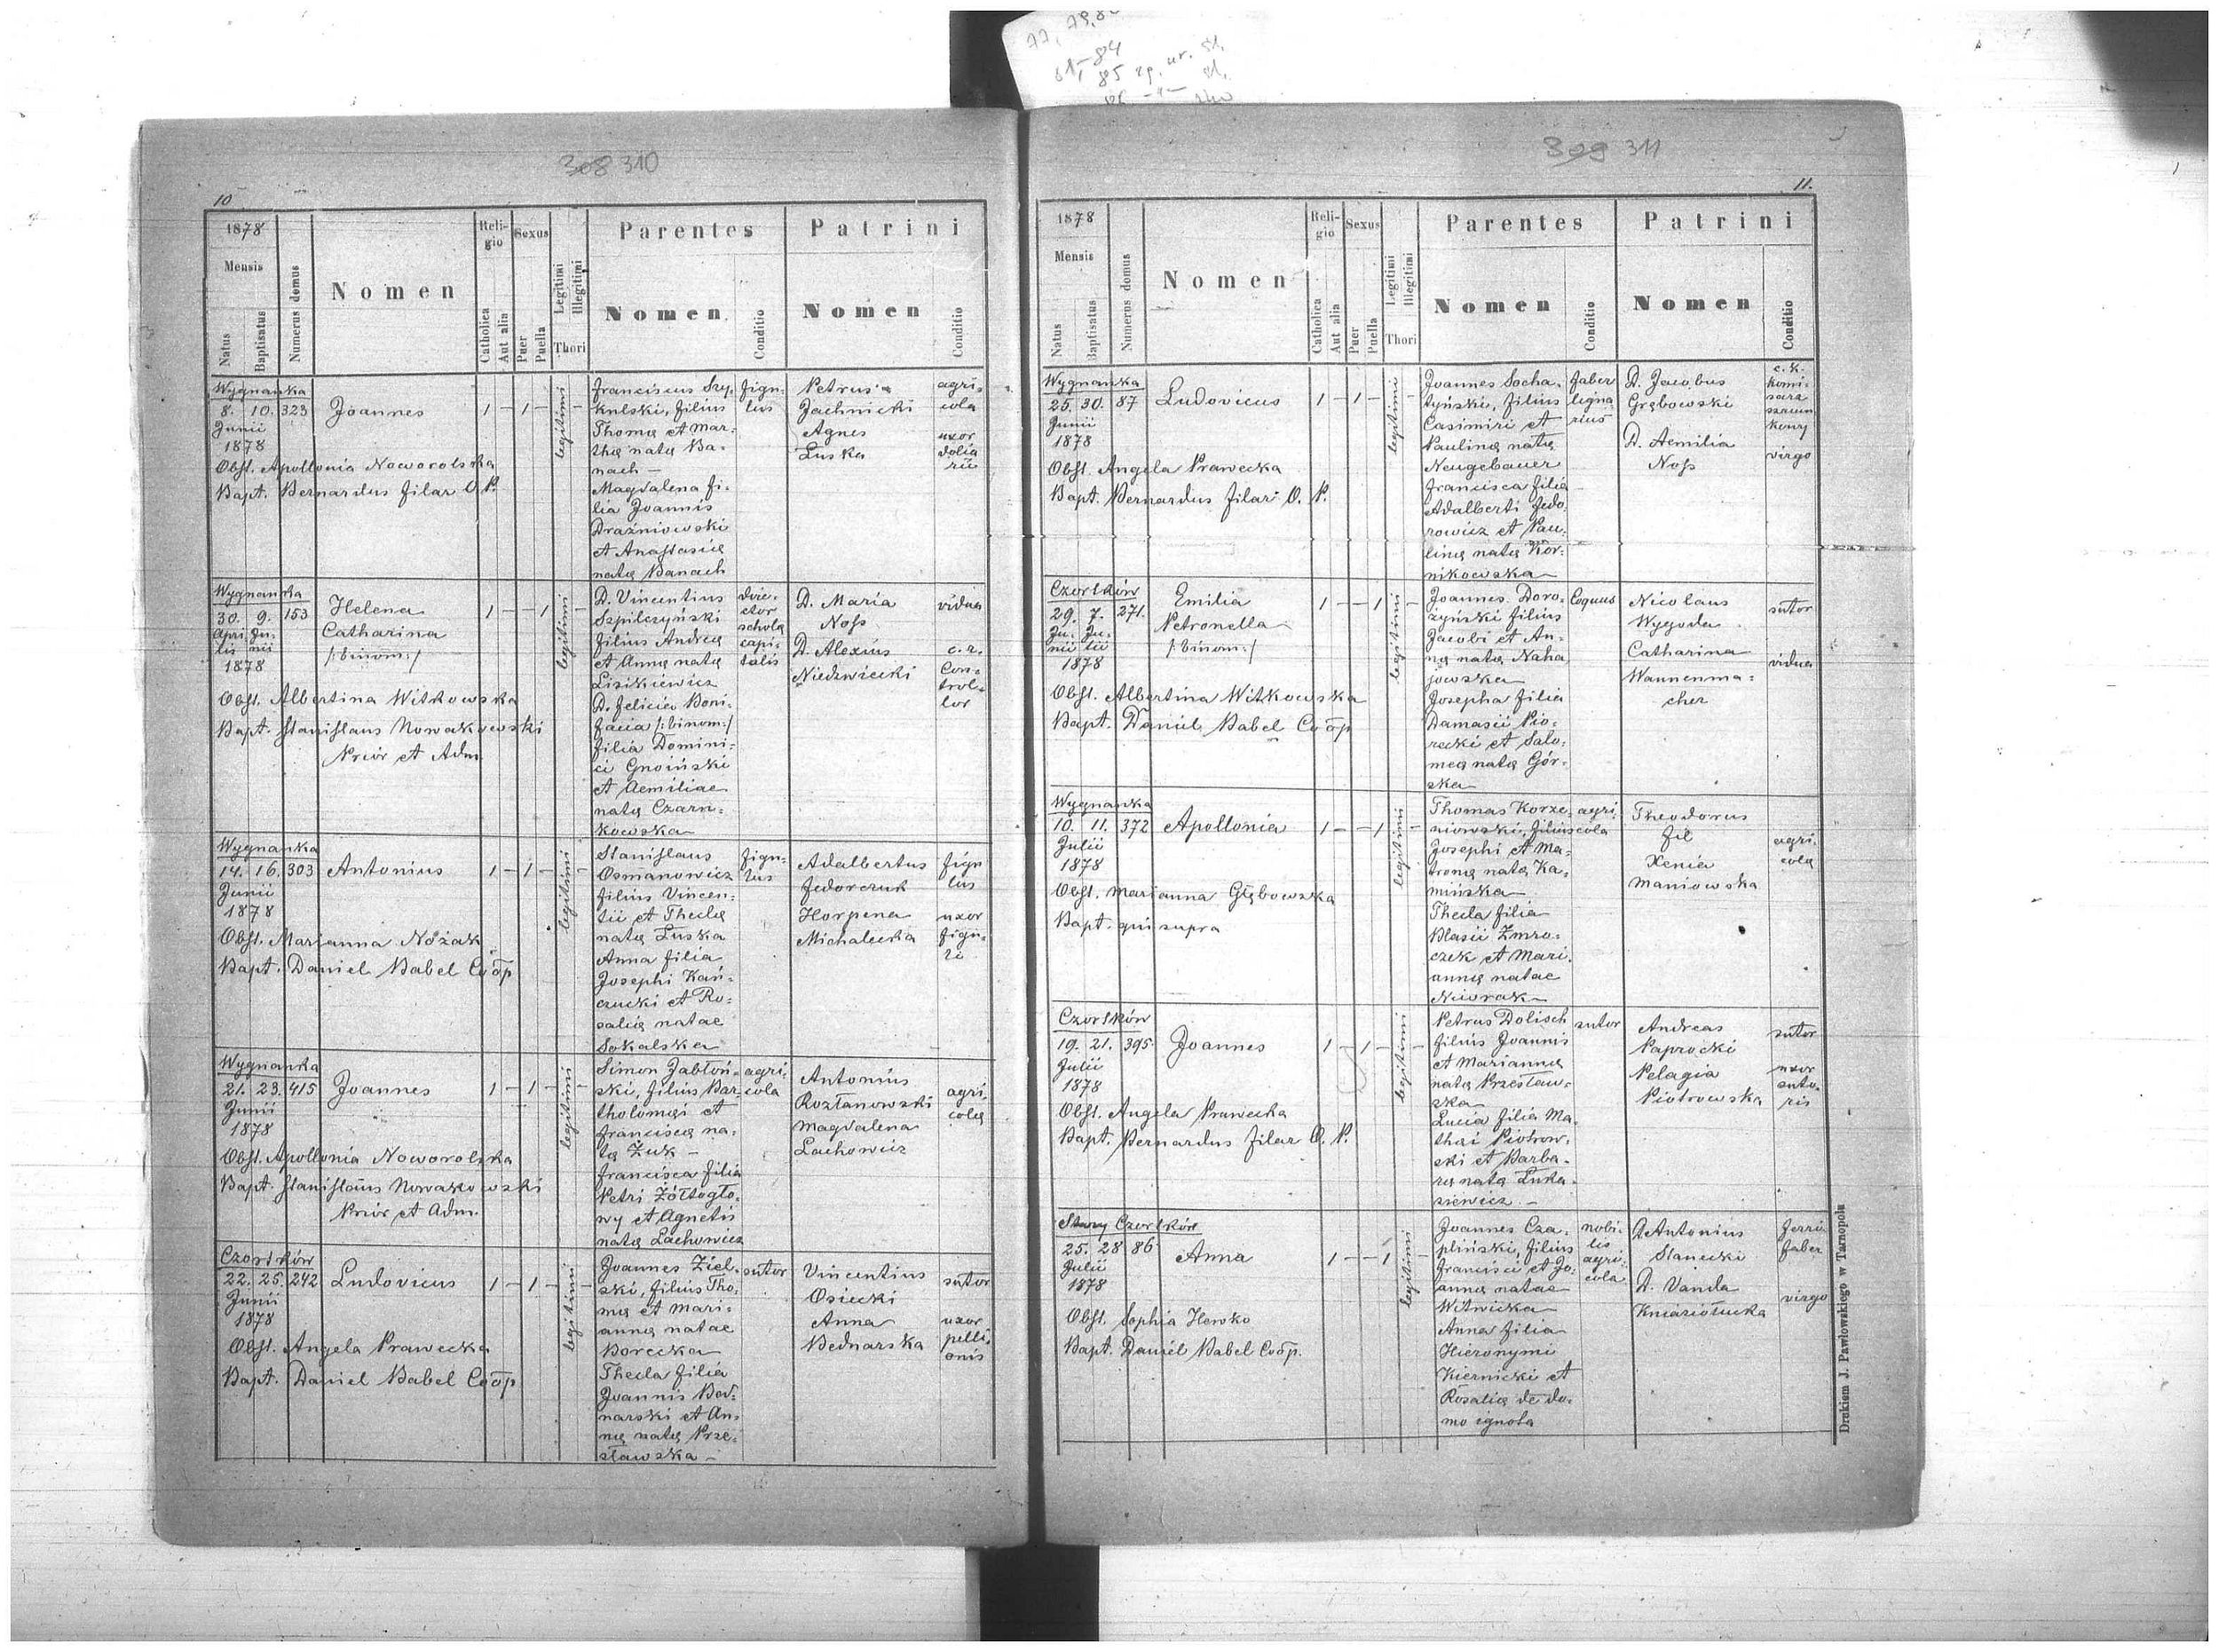 308 310
10
1878
Mensis
Natus
Baptisatus
Numerus domus
Nomen
Religio
Catholica
Aut alia
Sexus
Puer
Puella
Legitimi
Illegitimi
Thori
Parentes
Nomen
Conditio
Patrini
Nomen
Conditio
Wygnanka
8. 10. 323 Joannes 1 – 1 – legitimi –
Junii
1878
Obst. Apollonia Noworolska
Bapt. Bernardus Filar O. P.
Franciscus Szy-
kulski, filius
Thomę et Mar-
thę natę Ba-
nach –
Magdalena fi-
lia Joannis
Draźniowski
et Anastasię
natę Banach
figu-
lus
Petrus
Jachnicki
Agnes
Łuska
agri-
cola
uxor
dolia
rii
Wygnanka
30. 9. 153 Helena 1 – – 1 legitimi –
Apri- Ju-
lis nii
1878
Catharina
/:binom:/
Obst. Albertina Witkowska
Bapt. Stanislaus Nowakowski
Prior et Adm.
D. Vincentius
Szpilczyński
filius Andreę
et Annę natę
Lisikiewicz
D. Felicia Boni-
facia /:binom:/
filia Domini-
ci Gnoiński
et Aemiliae
natę Czarn-
kowska
dire-
ctor
scholę
capi-
talis
D. Maria
Noss
D. Alexius
Niedzwiecki
vidua
c. r.
Con-
trol-
lor
Wygnanka
14. 16. 303 Antonius 1 – 1 – legitimi –
Junii
1878
Obst. Marianna Nożak
Bapt. Daniel Babel Coop
Stanislaus
Osmanowicz
filius Vincen-
tii et Theclę
natę Łuska
Anna filia
Josephi Kań-
czucki et Ro-
salię natae
Sokalska
figu-
lus
Adalbertus
Fedorczuk
Horpena
Michalecka
figu
lus
uxor
figu-
li
Wygnanka
21. 23. 415 Joannes 1 – 1 – legitimi –
Junii
1878
Obst. Apollonia Noworolska
Bapt. Stanislaus Nowakowski
Prior et Adm.
Simon Jabłoń-
ski, filius Bar-
tholomęi et
Franciscę na-
tę Żuk –
Francisca filia
Petri Żółtogło-
wy et Agnetis
natę Lachowicz
agri-
cola
Antonius
Rozłanowski
Magdalena
Lachowicz
agri-
colę
Czortków
22. 25. 242 Ludovicus 1 – 1 – legitimi –
Junii
1878
Obst. Angela Prawecka
Bapt. Daniel Babel Coop
Joannes Ziel-
ski, filius Tho-
mę et Mari-
annę natae
Borecka
Thecla filia
Joannis Bed-
narski et An-
nę natę Prze-
sławska –
sutor
Vincentius
Osiecki
Anna
Bednarska
sutor
uxor
pelli-
onis
309 311
11.
1878
Mensis
Natus
Baptisatus
Numerus domus
Nomen
Religio
Catholica
Aut alia
Sexus
Puer
Puella
Legitimi
Illegitimi
Thori
Parentes
Nomen
Conditio
Patrini
Nomen
Conditio
Wygnanka
25. 30. 87 Ludovicus 1 – 1 – legitimi –
Junii
1878
Obst. Angela Prawecka
Bapt. Bernardus Filar O. P.
Joannes Socha-
tyński, filius
Casimiri et
Paulinę natę
Neugebauer
Francisca filia
Adalberti Fedo-
rowicz et Pau-
linę natę Kor-
nikowska
faber
ligna
rius
D. Jacobus
Grębowski
D. Aemilia
Noss
c. k.
komi-
sarz
virgo
Czortków
29. 7. 271. Emilia 1 – – 1 legitimi –
Ju- Ju-
nii lii
1878
Petronella
/:binom:/
Obst. Albertina Witkowska
Bapt. Daniel Babel Coop
Joannes Doro-
żyński filius
Jacobi et An-
nę natę Naha
jowska
Josepha filia
Damasii Pio-
recki et Salo-
meę natę Gór-
ska
Coquus
Nicolaus
Wygoda
Catharina
Wannenma-
cher
sutor
vidua
Wygnanka
10. 11. 372 Apollonia 1 – – 1 legitimi –
Julii
1878
Obst. Marianna Głębowska
Bapt. qui supra
Thomas Korze-
niowski, filius
Josephi et Ma-
tronę natę Ka-
mińska
Thecla filia
Blasii Zmro-
czek et Mari-
annę natae
Nuorak
agri-
cola
Theodorus
Fil
Xenia
Maniowska
agri-
colę
Czortków
19. 21. 395. Joannes 1 – 1 – legitimi –
Julii
1878
Obst. Angela Prawecka
Bapt. Bernardus Filar O. P.
Petrus Dolisch
filius Joannis
et Mariannę
natę Przesław-
ska
Lucia filia Ma-
thęi Piotrow-
ski et Barba-
rę natę Łuka-
siewicz –
sutor
Andreas
Paprocki
Pelagia
Piotrowska
sutor
uxor
suto-
ris
Stary Czortków
25. 28 86 Anna 1 – – 1 legitimi –
Julii
1878
Obst. Sophia Hewko
Bapt. Daniel Babel Coop.
Joannes Cza-
pliński, filius
Francisci et Jo-
annę natae
Witwicka
Anna filia
Hieronymi
Kiernicki et
Rosalię de do-
mo ignota
nobi-
lis
agri-
cola
D. Antonius
Stanecki
D. Vanda
Kniaziołucka
ferri
faber
virgo
Drukiem J. Pawłowskiego w Tarnopolu